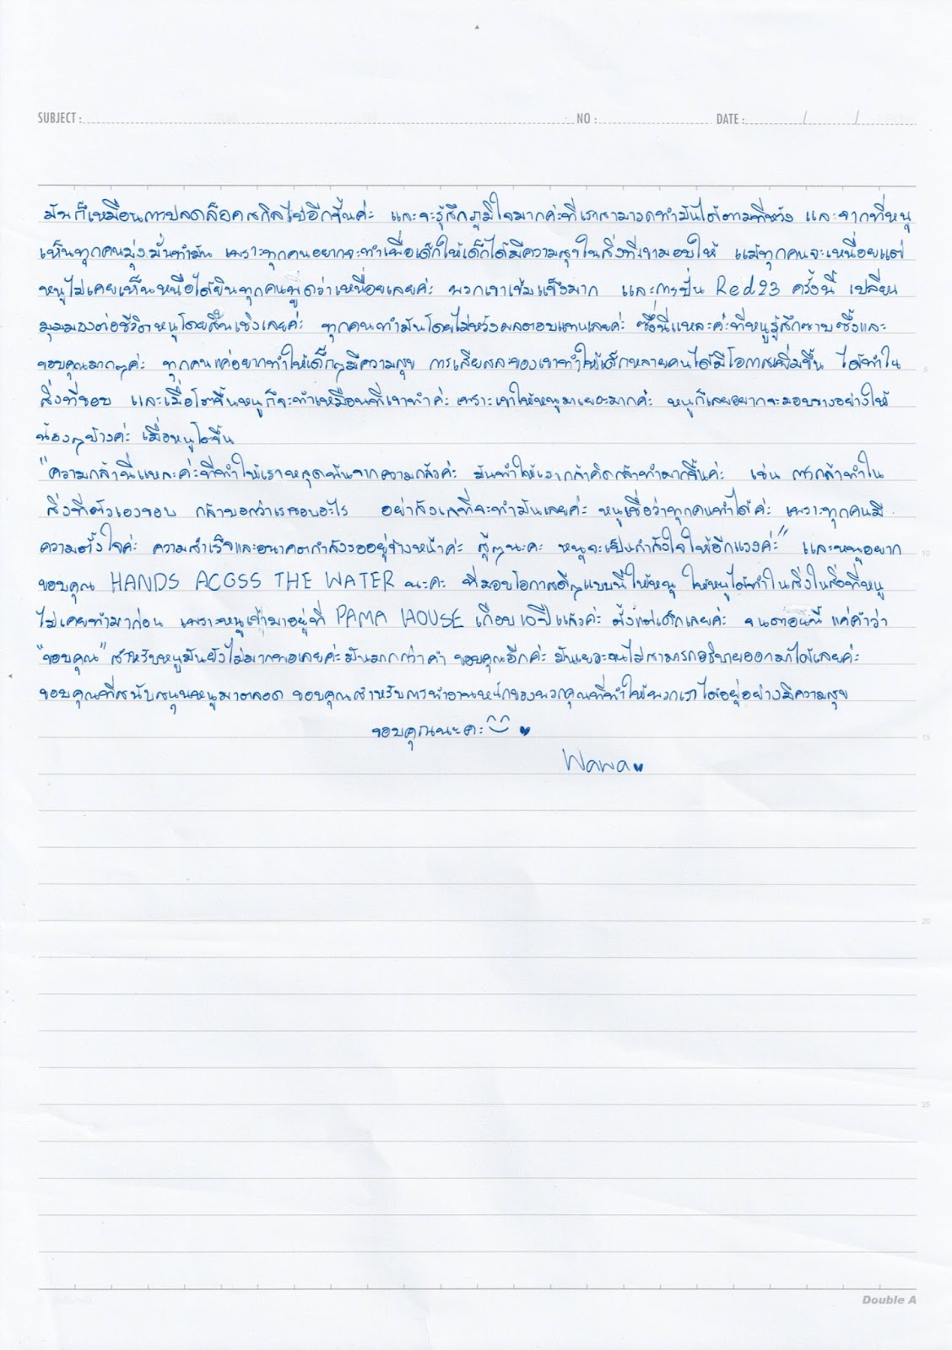 SUBJECT : NO : DATE : / /
มันก็เหมือนการปลดล็อคสกิลไปอีกขั้นค่ะ และจะรู้สึกภูมิใจมากค่ะที่เราสามารถทำมันได้ตามที่หวัง และจากที่หนู
เห็นทุกคนมุ่งมั่นทำมัน เพราะทุกคนอยากจะทำเพื่อเด็กให้เด็กได้มีความสุขในสิ่งที่เขามอบให้ แม้ทุกคนจะเหนื่อยแต่
หนูไม่เคยเห็นหรือได้ยินทุกคนพูดว่าเหนื่อยเลยค่ะ พวกเขาเข้มแข็งมาก และการปั่น Red23 ครั้งนี้ เปลี่ยน
มุมมองต่อชีวิตหนูโดยสิ้นเชิงเลยค่ะ ทุกคนทำมันโดยไม่หวังผลตอบแทนเลยค่ะ ซึ่งนี่แหละค่ะที่หนูรู้สึกซาบซึ้งและ
ขอบคุณมากๆค่ะ ทุกคนแค่อยากทำให้เด็กๆมีความสุข การเสียสละของเขาทำให้เด็กหลายคนได้มีโอกาสเพิ่มขึ้น ได้ทำใน
5
สิ่งที่ชอบ และเมื่อโตขึ้นหนูก็จะทำเหมือนที่เขาทำค่ะ เพราะเขาให้หนูมาเยอะมากค่ะ หนูก็เลยอยากจะมอบบางอย่างให้
น้องๆบ้างค่ะ เมื่อหนูโตขึ้น
"ความกล้านี่แหละค่ะที่ทำให้เราหลุดพ้นจากความกลัวค่ะ มันทำให้เรากล้าคิดกล้าทำมากขึ้นค่ะ เช่น การกล้าทำใน
สิ่งที่ตัวเองชอบ กล้าบอกว่าเราชอบอะไร อย่าลังเลที่จะทำมันเลยค่ะ หนูเชื่อว่าทุกคนทำได้ค่ะ เพราะทุกคนมี
ความตั้งใจค่ะ ความสำเร็จและอนาคตกำลังรออยู่ข้างหน้าค่ะ สู้ๆนะคะ หนูจะเป็นกำลังใจให้อีกแรงค่ะ" และหนูอยาก
10
ขอบคุณ HANDS ACOSS THE WATER นะคะ ที่มอบโอกาสดีๆแบบนี้ให้หนู ให้หนูได้ทำในสิ่งในสิ่งที่หนู
ไม่เคยทำมาก่อน เพราะหนูเข้ามาอยู่ที่ PAMA HOUSE เกือบ 10ปีแล้วค่ะ ตั้งแต่เด็กเลยค่ะ จนตอนนี้ แค่คำว่า
"ขอบคุณ" สำหรับหนูมันยังไม่มากพอเลยค่ะมันมากกว่าคำ ขอบคุณอีกค่ะ มันเยอะจนไม่สามารถอธิบายออกมาได้เลยค่ะ
ขอบคุณที่สนับสนุนหนูมาตลอด ขอบคุณสำหรับการทำงานหนักของพวกคุณที่ทำให้พวกเราได้อยู่อย่างมีความสุข
ขอบคุณนะคะ
15
Wawa
20
25
Double A